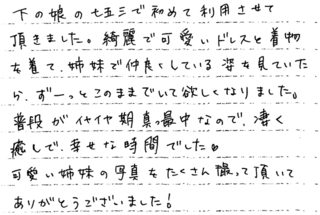 下の娘の七五三で初めて利用させて
頂きました。綺麗で可愛いドレスと着物
を着て、姉妹で仲良くしている姿を見ていた
ら、ずーっとこのままでいて欲しくなりました。
普段がイヤイヤ期真っ最中なので、凄く
癒しで、幸せな時間でした。
可愛い姉妹の写真をたくさん撮って頂いて
ありがとうございました!